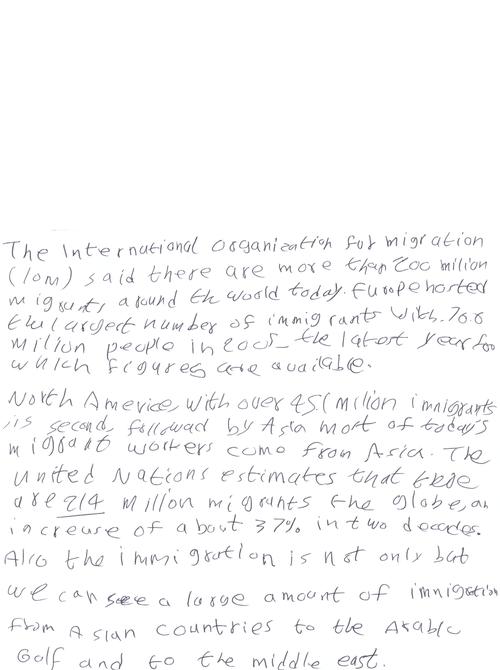 The International Organization for migration
(IOM) said there are more than 200 million
migrants around the world today. Europe hosted
the largest number of immigrants with 70.6
million people in 2005, the latest year for
which figures are available.
North America, with over 45.1 million immigrants
is second, followed by Asia most of today's
migrant workers come from Asia. The
united Nations estimates that there
are 214 million migrants the globe, an
increase of about 37% in two decades.
Also the immigration is not only but
we can see a large amount of immigration
from Asian countries to the Arabic
Golf and to the middle east.